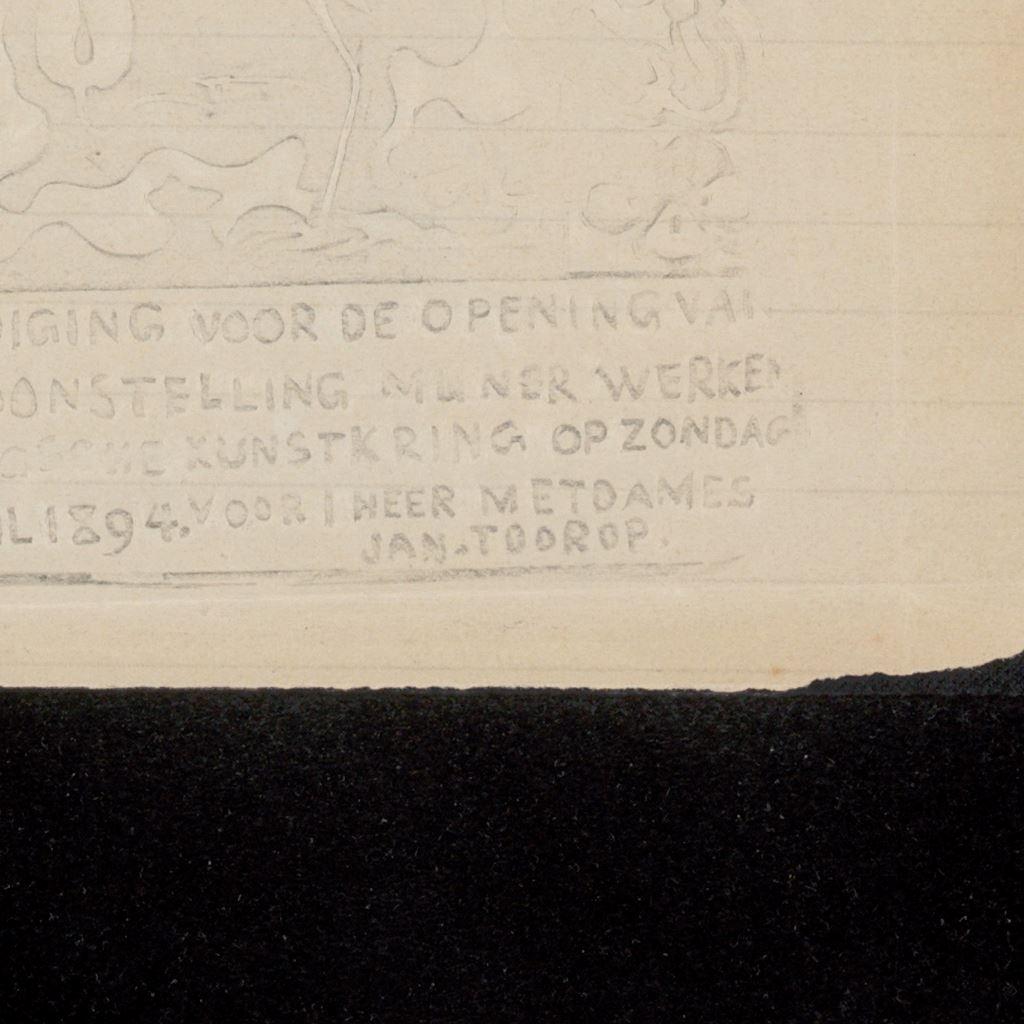 DIGING VOOR DE OPENING VAN
OONSTELLING MIJNER WERKEN
GSCHE KUNSTKRING OP ZONDAG
IL 1894. VOOR 1 HEER MET DAMES
JAN. TOOROP.